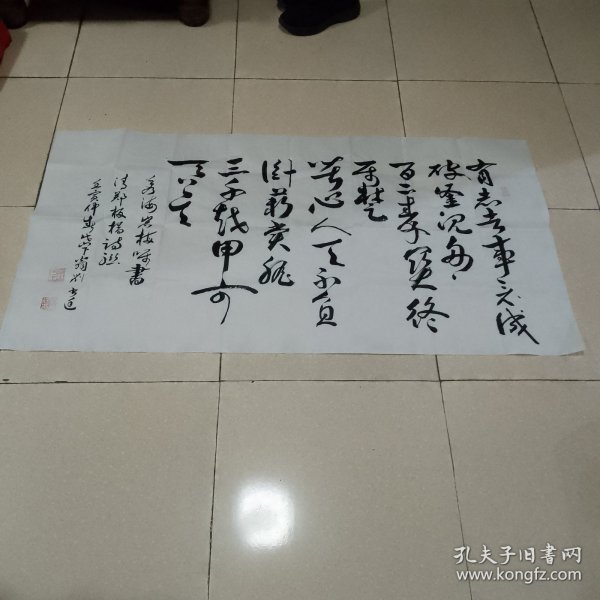 有志者事竟成
破釜沉舟
百二秦关终
属楚
苦心人天不负
卧薪尝胆
三千越甲可
吞吴
香海岩梅嘱书
清郑板桥诗联
仲春
孔夫子旧书网
www.kongfz.com